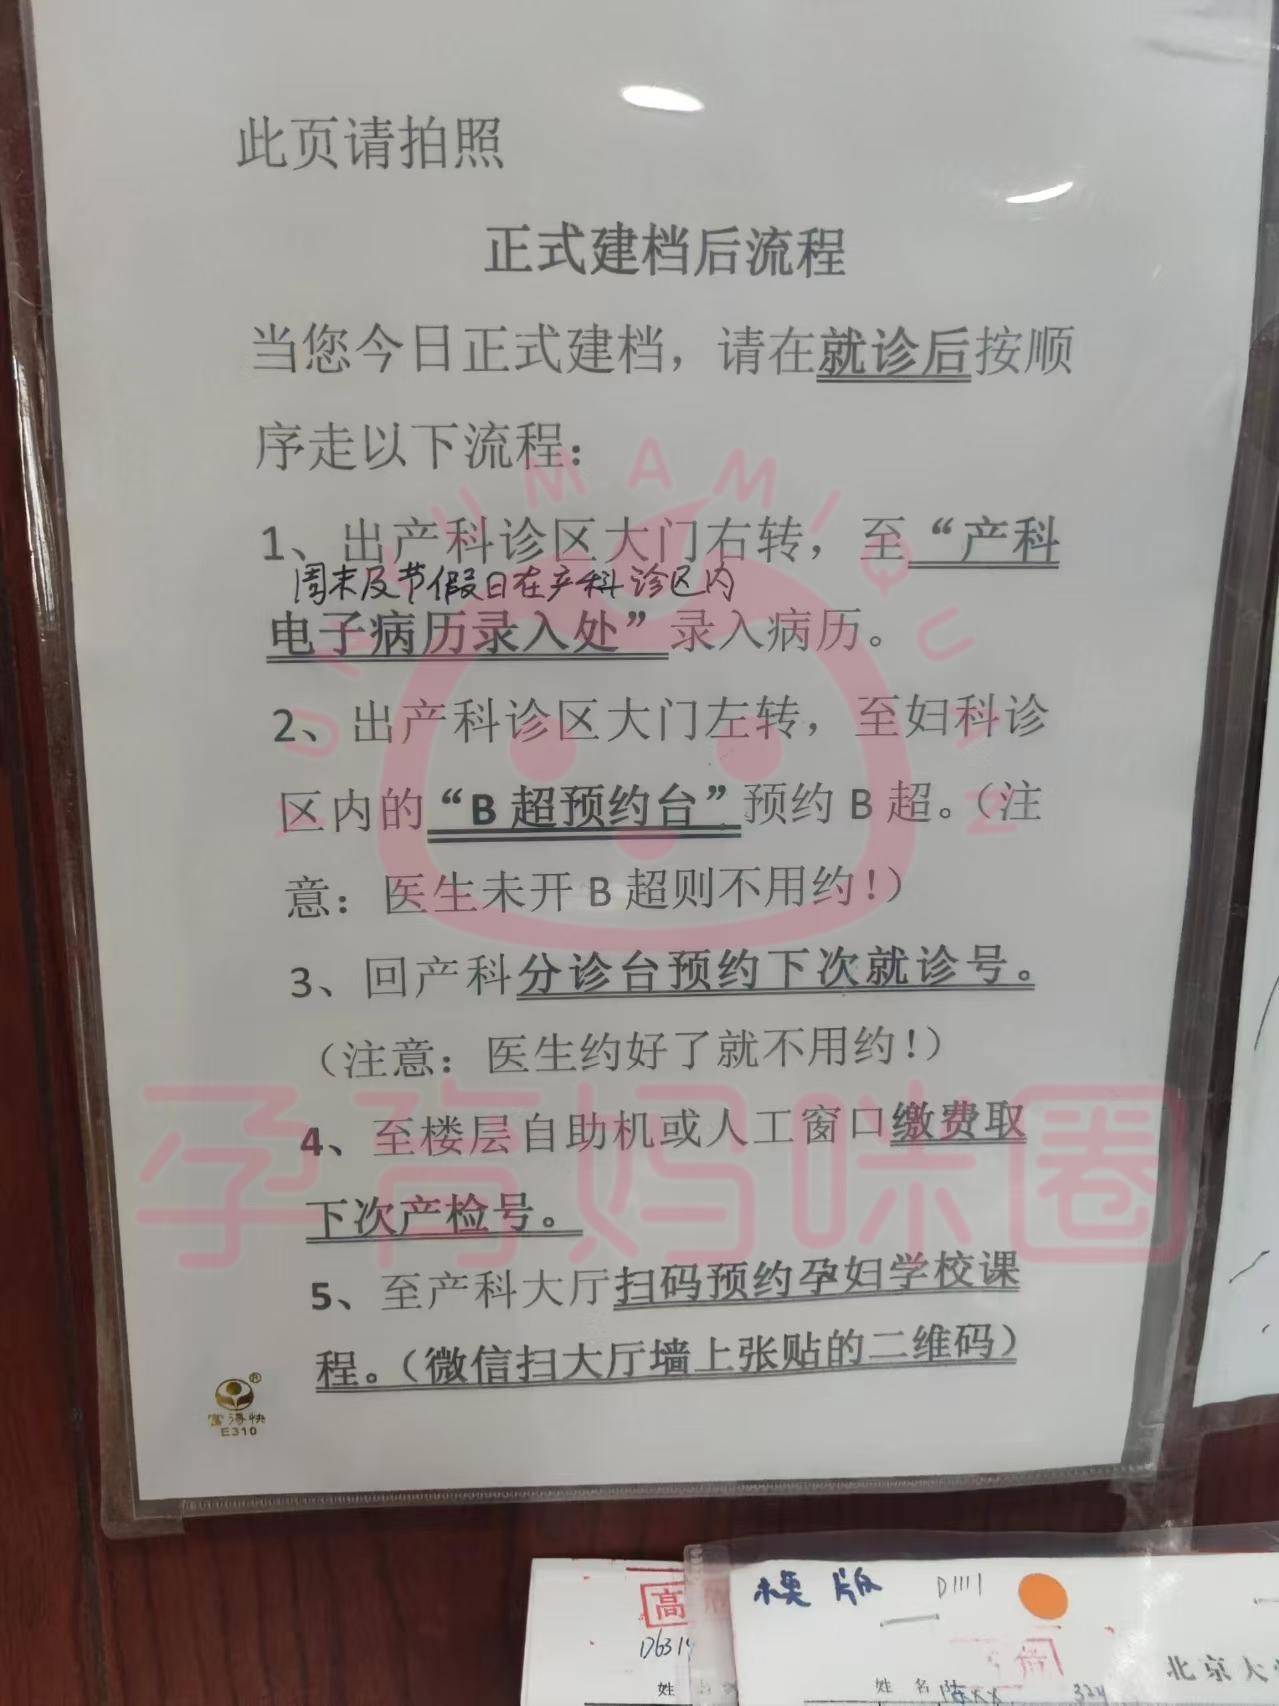 此页请拍照
正式建档后流程
当您今日正式建档，请在就诊后按顺
序走以下流程：
1、出产科诊区大门右转，至“产科
周末及节假日在产科诊区内
电子病历录入处”录入病历。
2、出产科诊区大门左转，至妇科诊
区内的“B超预约台”预约B超。（注
意：医生未开B超则不用约！）
3、回产科分诊台预约下次就诊号。
（注意：医生约好了就不用约！）
4、至楼层自助机或人工窗口缴费取
下次产检号。
5、至产科大厅扫码预约孕妇学校课
程。（微信扫大厅墙上张贴的二维码）
孕育妈咪圈
富得快®
E310
模版 D1111
高
姓
姓名 陈XX
北京大